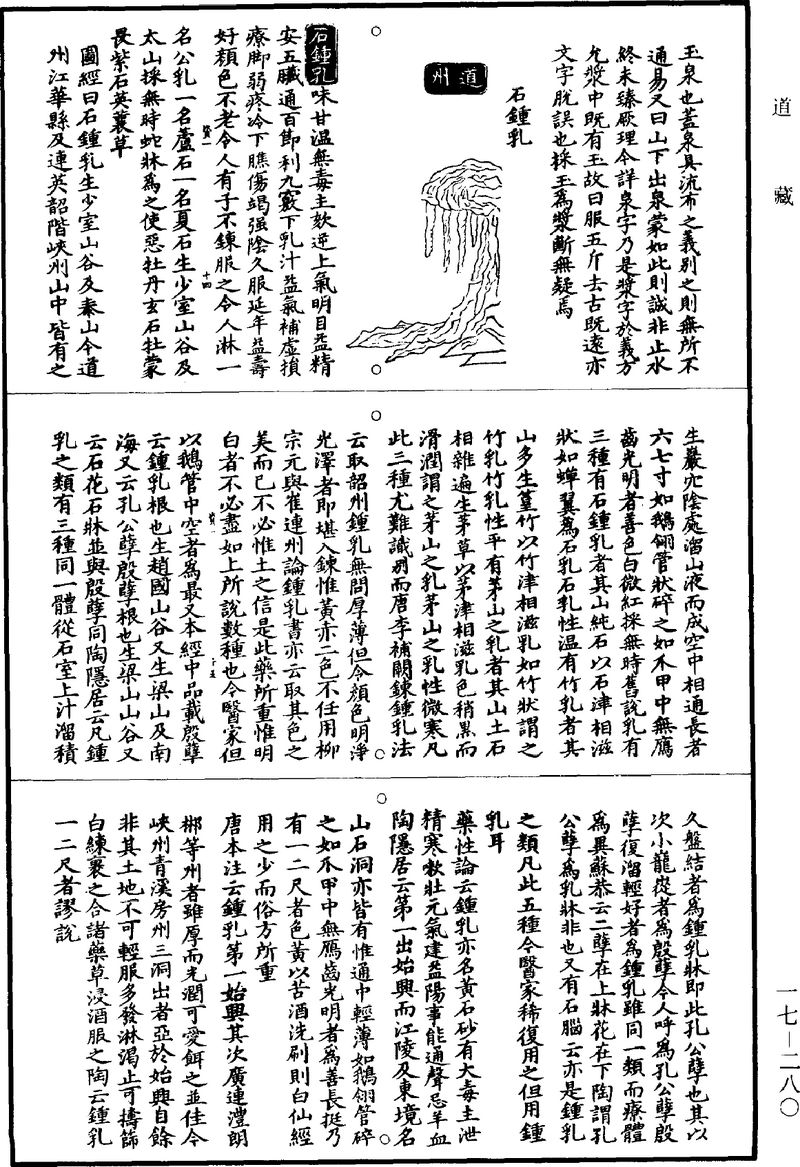 道藏
玉泉也蓋泉具流布之義別之則無所不
通易又曰山下出泉蒙如此則誠非止水
終未臻厥理今詳泉字乃是漿字於義方
允漿中既有玉故曰服五斤去古既遠亦
文字脫誤也採玉為漿斷無疑焉
石鍾乳
道州
石鍾乳味甘溫無毒主欬逆上氣明目益精
安五臟通百節利九竅下乳汁益氣補虛損
療脚弱疼冷下膲傷竭強陰久服延年益壽
好顏色不老令人有子不鍊服之令人淋一
名公乳一名蘆石一名夏石生少室山谷及
太山採無時蛇牀為之使惡牡丹玄石牡蒙
畏紫石英蘘草
圖經曰石鍾乳生少室山谷及泰山今道
州江華縣及連英韶階峽州山中皆有之
生巖穴陰處溜山液而成空中相通長者
六七寸如鵝翎管狀碎之如爪甲中無鴈
齒光明者善色白微紅採無時舊說乳有
三種有石鍾乳者其山純石以石津相滋
狀如蟬翼為石乳石乳性溫有竹乳者其
山多生篁竹以竹津相滋乳如竹狀謂之
竹乳竹乳性平有茅山之乳者其山土石
相雜遍生茅草以茅津相滋乳色稍黑而
滑潤謂之茅山之乳茅山之乳性微寒凡
此三種尤難識別而唐李補闕鍊鍾乳法
云取韶州鍾乳無問厚薄但令顏色明淨
光澤者即堪入鍊惟黃赤二色不任用柳
宗元與崔連州論鍾乳書亦云取其色之
美而已不必惟土之信是此藥所重惟明
白者不必盡如上所說數種也今醫家但
以鵝管中空者為最又本經中品載殷孽
云鍾乳根也生趙國山谷又生梁山及南
海又云孔公孽殷孽根也生梁山山谷又
云石花石牀並與殷孽同陶隱居云凡鍾
乳之類有三種同一體從石室上汁溜積
久盤結者為鍾乳牀即此孔公孽也其以
次小龍從者為殷孽今人呼為孔公孽殷
孽復溜輕好者為鍾乳雖同一類而療體
為異蘇恭云二孽在上牀花在下陶謂孔
公孽為乳牀非也又有石腦云亦是鍾乳
之類凡此五種今醫家稀復用之但用鍾
乳耳
藥性論云鍾乳亦名黃石砂有大毒主泄
精寒欬壯元氣建益陽事能通聲忌羊血
陶隱居云第一出始興而江陵及東境名
山石洞亦皆有惟通中輕薄如鵝翎管碎
之如爪甲中無鴈齒光明者為善長挺乃
有一二尺者色黃以苦酒洗刷則白仙經
用之少而俗方所重
唐本注云鍾乳第一始興其次廣連澧朗
郴等州者雖厚而光潤可愛餌之並佳今
峽州青溪房州三洞出者亞於始興自餘
非其土地不可輕服多發淋渴止可擣篩
白練裹之合諸藥草浸酒服之陶云鍾乳
一二尺者謬說
一七—二八〇